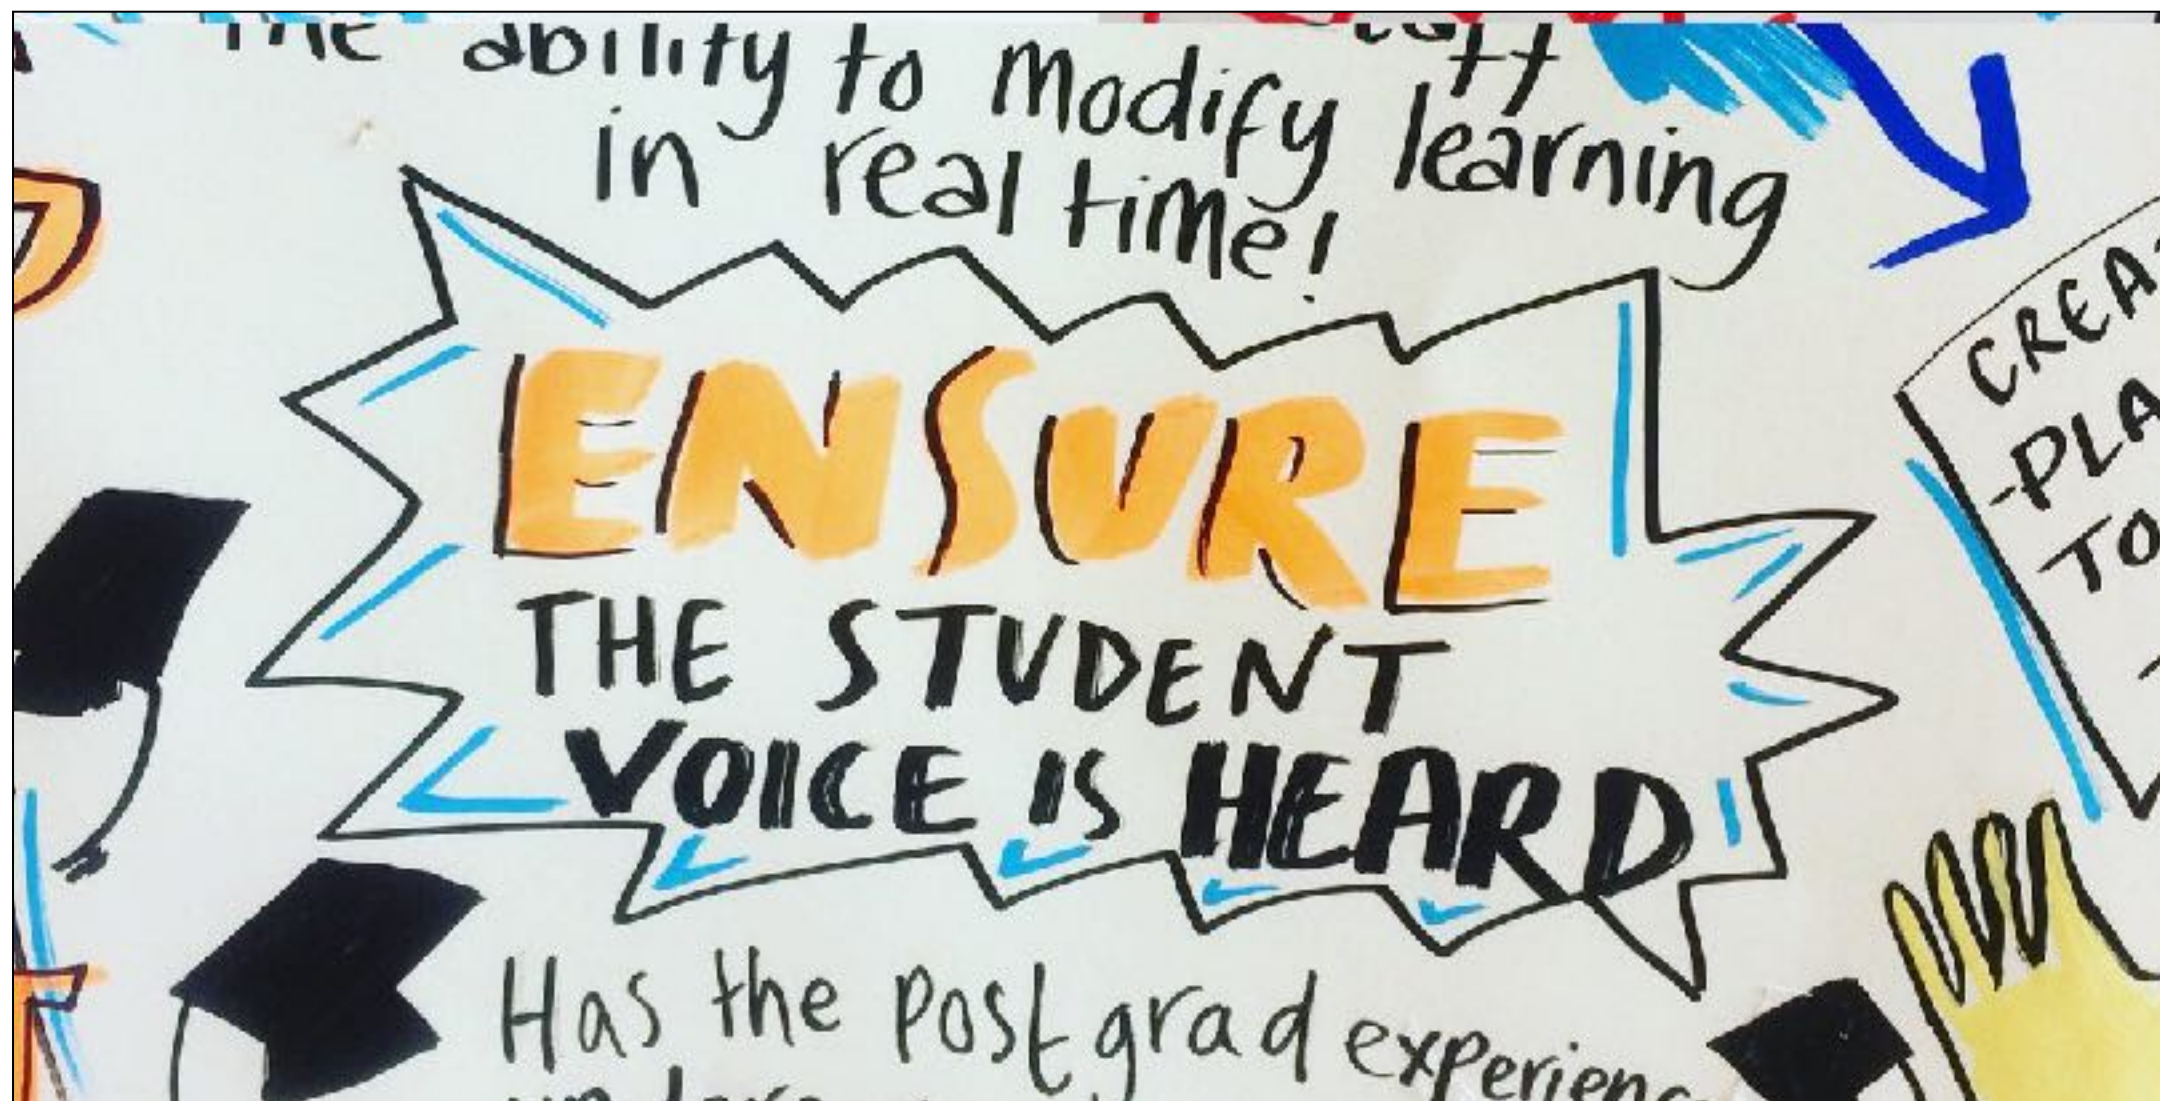 The ability to modify learning
in real time!
ENSURE
THE STUDENT
VOICE IS HEARD
Has the postgrad
TO